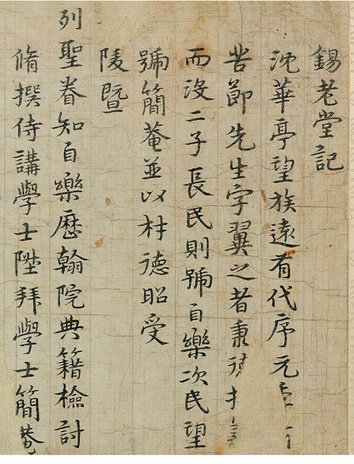 錫老堂記
沈華亭望族遠有代序元
苦節先生字翼之者秉
而沒二子長民則號自樂次民望
號簡菴並以材德昭受
陵曁
列聖眷知自樂歷翰院典籍檢討
脩撰侍講學士陞拜學士簡菴